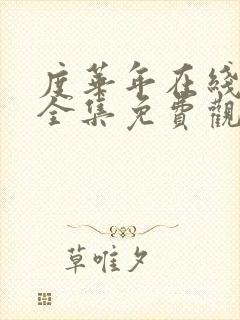 度華年在綫
全集免費觀
草唯夕